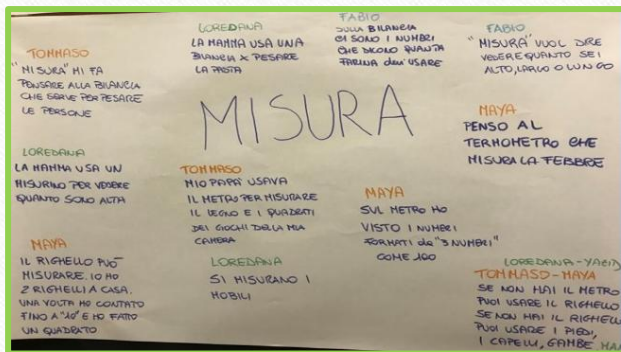 TOMMASO
"MISURA" MI FA
PENSARE ALLA BILANCIA
CHE SERVE PER PESARE
LE PERSONE
LOREDANA
LA MAMMA USA UNA
BILANCIA X PESARE
LA PASTA
FABIO
SULLA BILANCIA
CI SONO I NUMERI
CHE DICONO QUANTA
FARINA devi USARE
FABIO
"MISURA" VUOL DIRE
VEDERE QUANTO SEI
ALTO, LARGO O LUNGO
MISURA
MAYA
PENSO AL
TERMOMETRO CHE
MISURA LA FEBBRE
LOREDANA
LA MAMMA USA UN
MISURINO PER VEDERE
QUANTO SONO ALTA
TOMMASO
MIO PAPÀ USAVA
IL METRO PER MISURARE
IL LEGNO E I QUADRATI
DEI GIOCHI DELLA MIA
CAMERA
MAYA
SUL METRO HO
VISTO I NUMERI
FORMATI da "3 NUMERI"
COME 100
MAYA
IL RIGHELLO PUÒ
MISURARE. IO HO
2 RIGHELLI A CASA.
UNA VOLTA HO CONTATO
FINO A "10" E HO FATTO
UN QUADRATO
LOREDANA
SI MISURANO I
MOBILI
LOREDANA-YACID
TOMMASO-MAYA
SE NON HAI IL METRO
PUOI USARE IL RIGHELLO
SE NON HAI IL RIGHELLO
PUOI USARE I PIEDI,
I CAPELLI, GAMBE